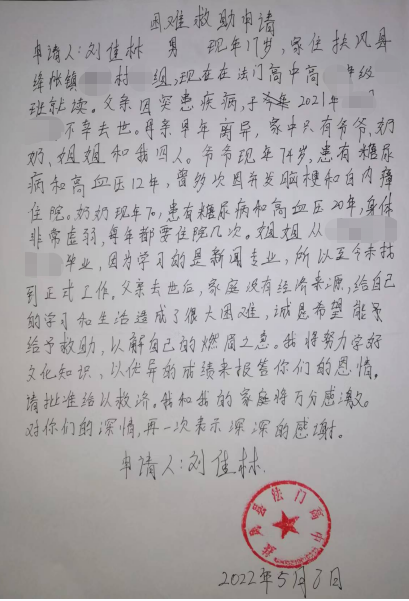 困难救助申请
申请人:刘佳林 男 现年17岁,家住扶风县
绛帐镇 村 组,现在在法门高中高 年级
班就读。父亲因突患疾病,于 2021年
不幸去世。母亲早年离异,家中只有爷爷、奶
奶、姐姐和我四人。爷爷现年74岁,患有糖尿
病和高血压12年,曾多次因并发脑梗和白内障
住院。奶奶现年70,患有糖尿病和高血压20年,身体
非常虚弱,每年都要住院几次。姐姐从
毕业,因为学习的是新闻专业,所以至今未找
到正式工作。父亲去世后,家庭没有经济来源,给自己
的学习和生活造成了很大困难,诚恳希望能予
给予救助,以解自己的燃眉之急。我将努力学好
文化知识、以优异的成绩来报答你们的恩情。
请批准给以救济。我和我的家庭将万分感激。
对你们的深情,再一次表示深深的感谢。
申请人:刘佳林.
扶风县法门高中
2022年5月 日